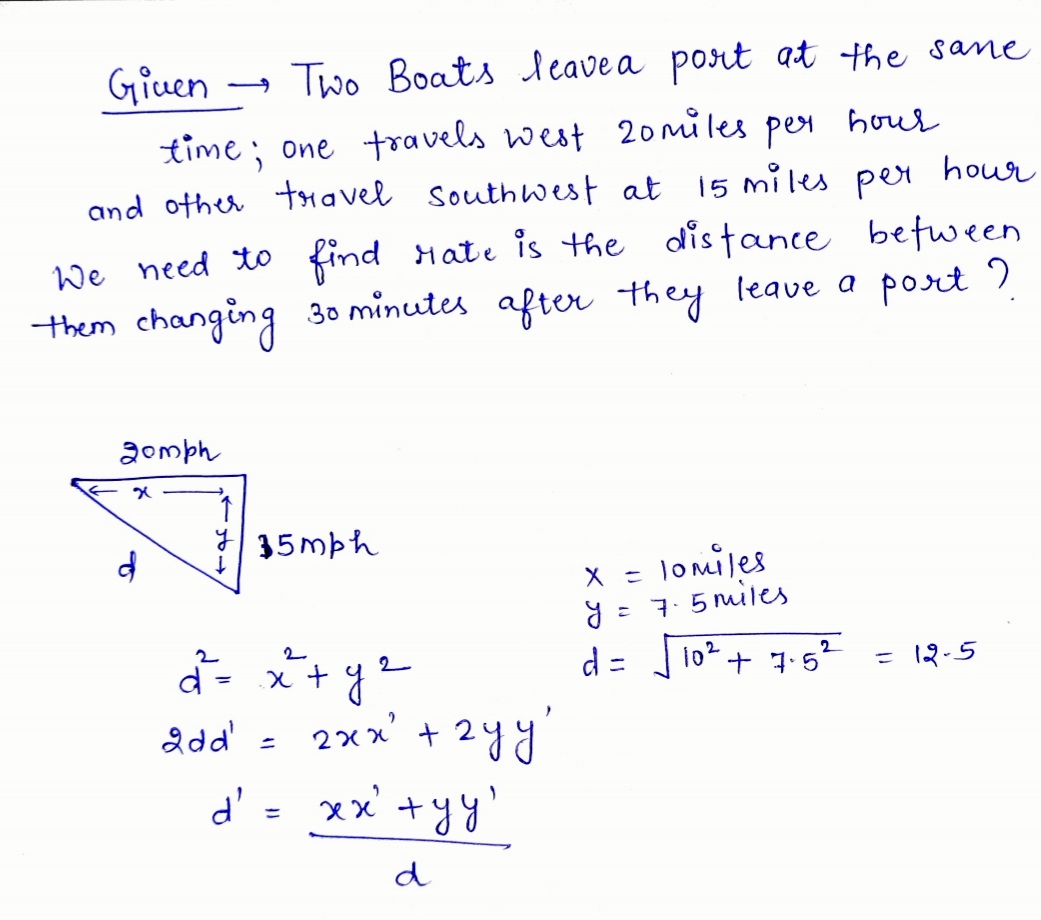 Given → Two Boats leave a port at the sane
time; one travels west 20 miles per hour
and other travel southwest at 15 miles per hour
We need to find rate is the distance between
them changing 30 minutes after they leave a port ?
20mph
x
y
15mph
d
x = 10 miles
y = 7.5 miles
d = √10² + 7.5² = 12.5
d² = x² + y²
2dd' = 2xx' + 2yy'
d' = xx' + yy'
d